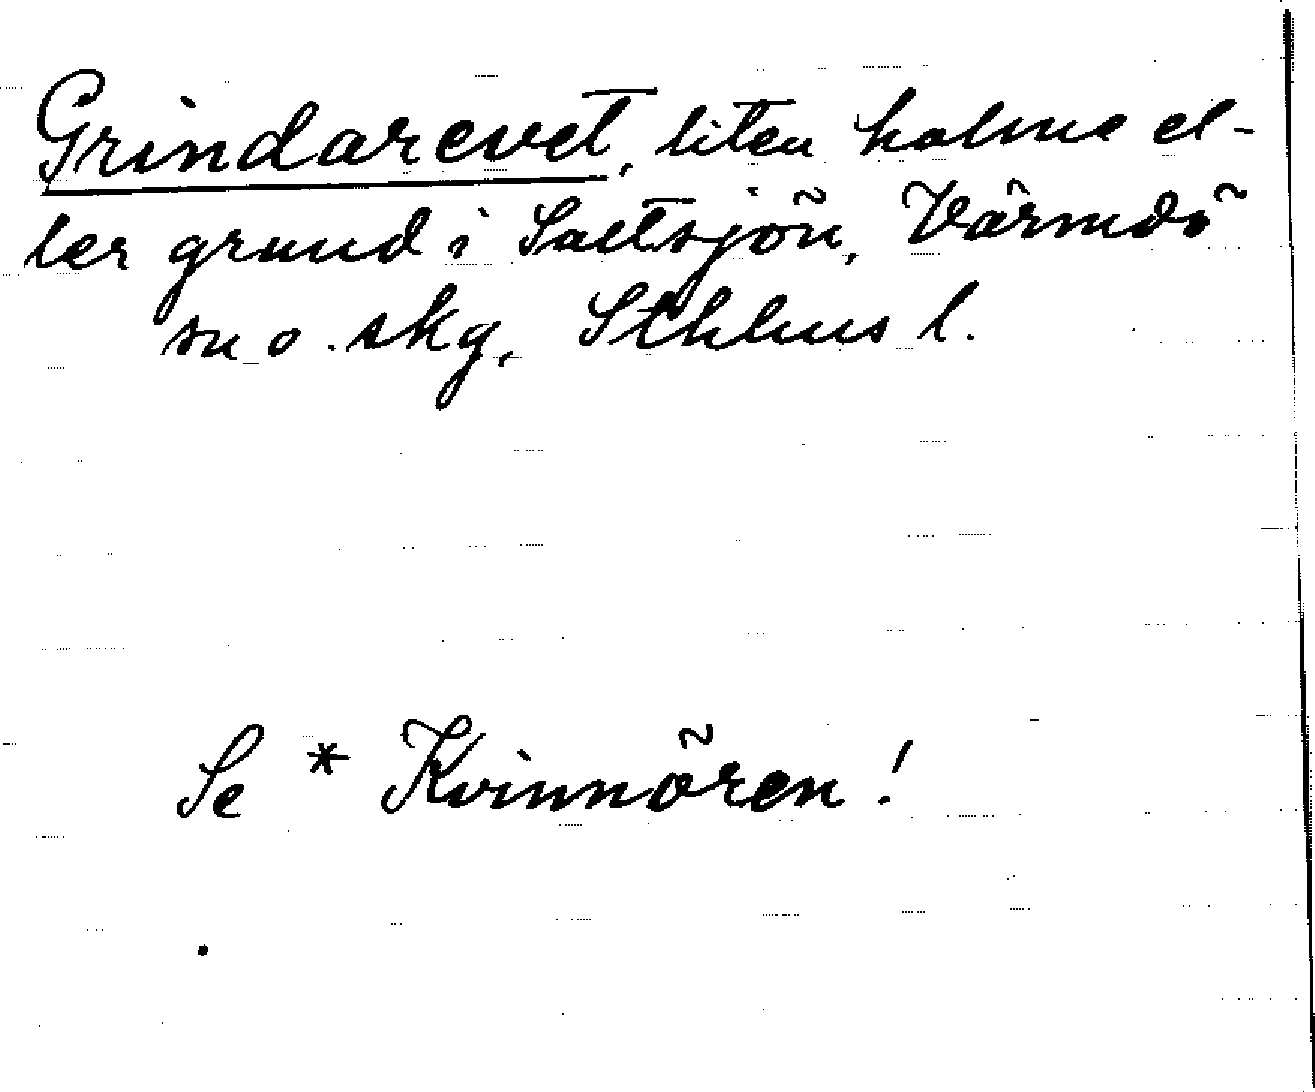 Grindarevet, liten holme el-
ler grund i Saltsjön, Värmdö
sn o. skg, Sthlms l.
Se * Kvinnören!